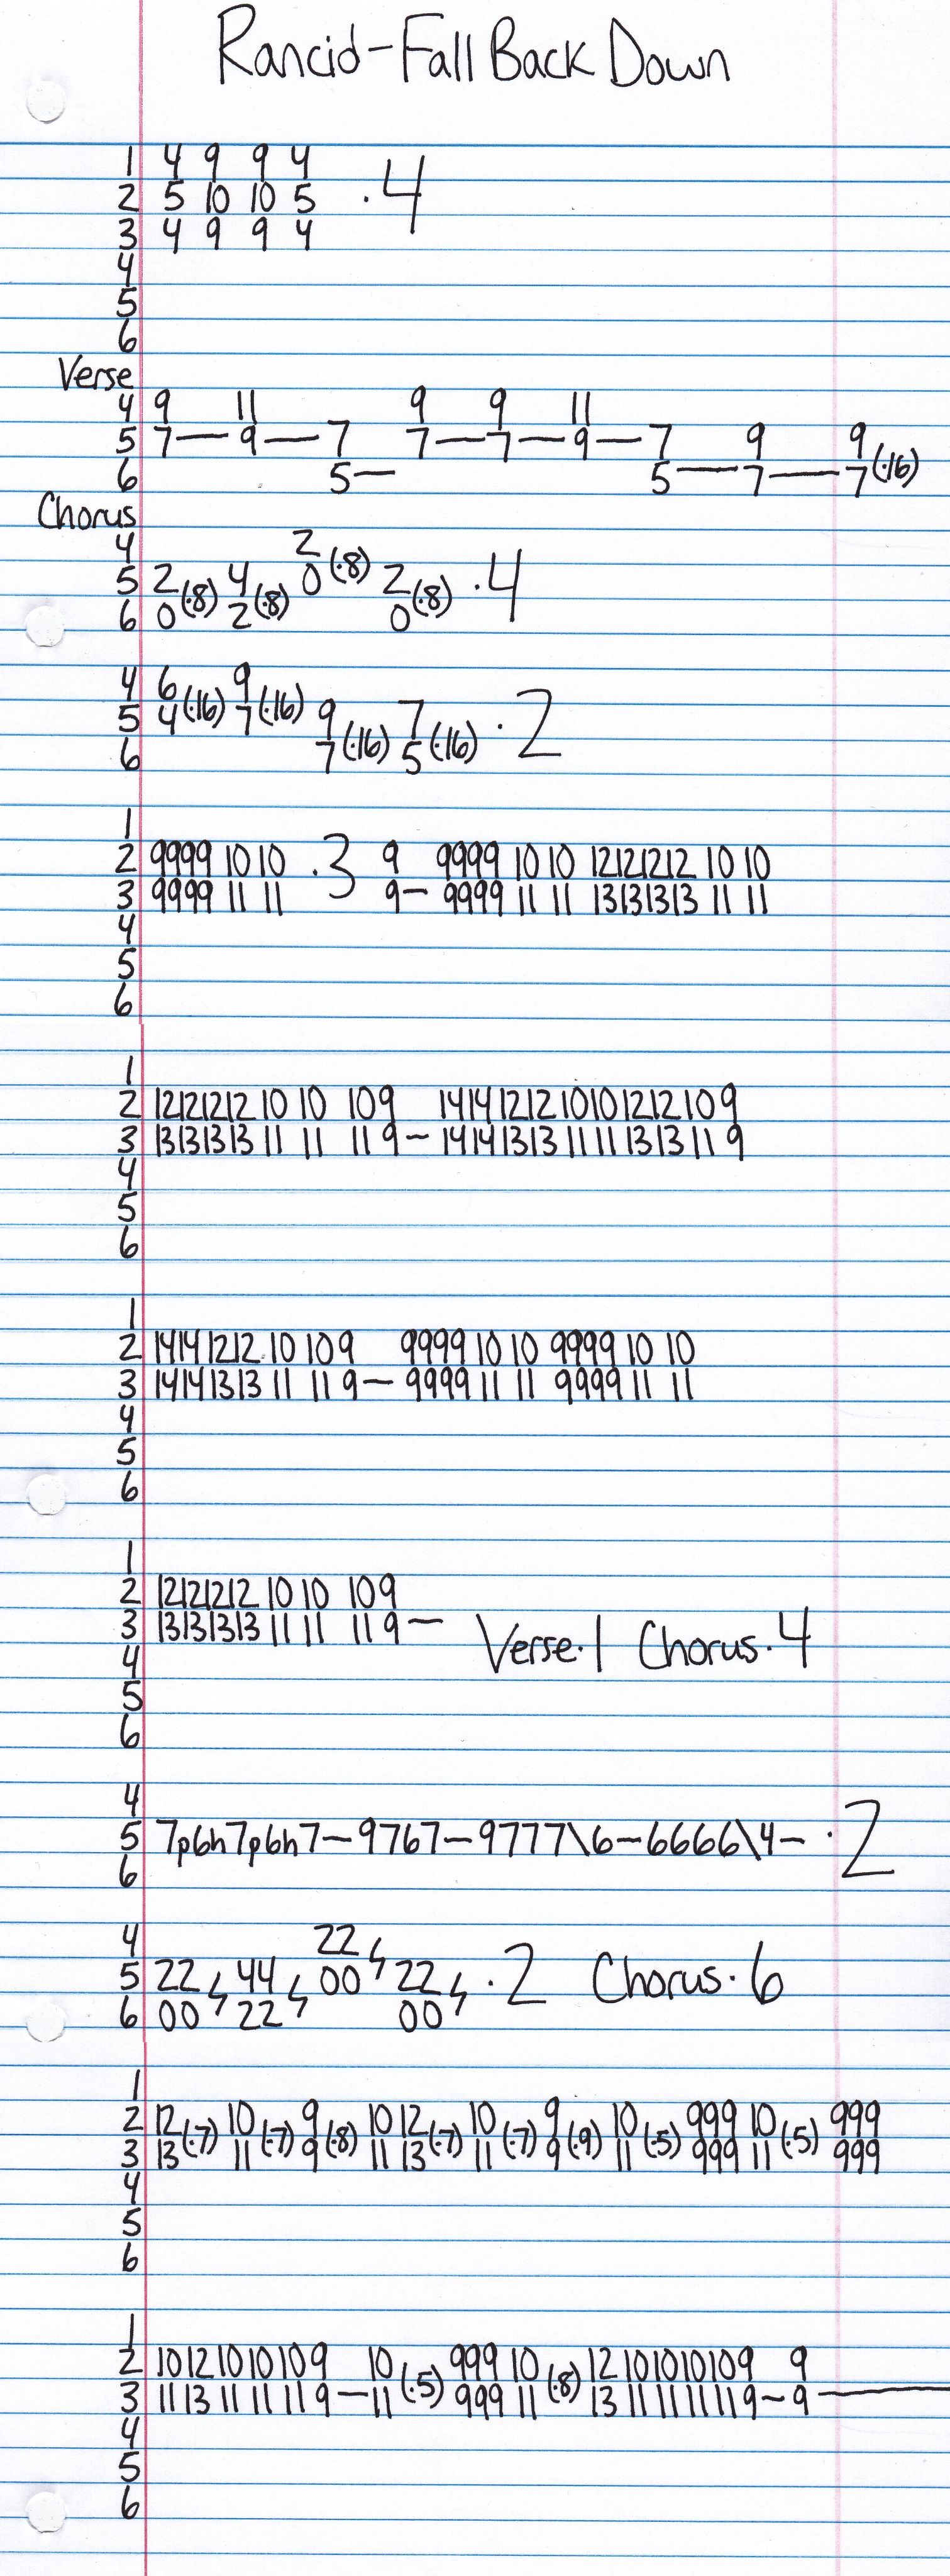 Rancid-Fall Back Down
1 4 9 9 4
2 5 10 10 5 .4
3 4 9 9 4
4
5
6
Verse
4 9 11 9 9 11
5 7—9—7 7—7—9—7 9 9
6 5— 5—7—7(.16)
Chorus
4 2
5 2(.8) 4(.8) 0(.8) 2(.8) .4
6 0 2 0
4 6(.16) 9(.16)
5 4 7 9(.16) 7(.16) .2
6 7 5
1
2 9999 10 10 .3 9 9999 10 10 12121212 10 10
3 9999 11 11 9— 9999 11 11 13131313 11 11
4
5
6
1
2 12121212 10 10 109 1414121210101212109
3 13131313 11 11 11 9—1414131311111313119
4
5
6
1
2 14141212 10 109 9999 10 10 9999 10 10
3 14141313 11 11 9— 9999 11 11 9999 11 11
4
5
6
1
2 12121212 10 10 109
3 13131313 11 11 11 9— Verse.1 Chorus.4
4
5
6
4
5 7p6h7p6h7—9767—9777\6—6666\4— .2
6
4 22
5 22 44 00 22 .2 Chorus.6
6 00 22 00
1
2 12(.7) 10(.7) 9(.8) 10 12(.7) 10(.7) 9(.9) 10(.5) 999 10(.5) 999
3 13 11 9 11 13 11 9 11 999 11 999
4
5
6
1
2 10121010109 10(.5) 999 10(.8) 12101010109 9
3 11131111119—11 999 11 13111111119—9—
4
5
6